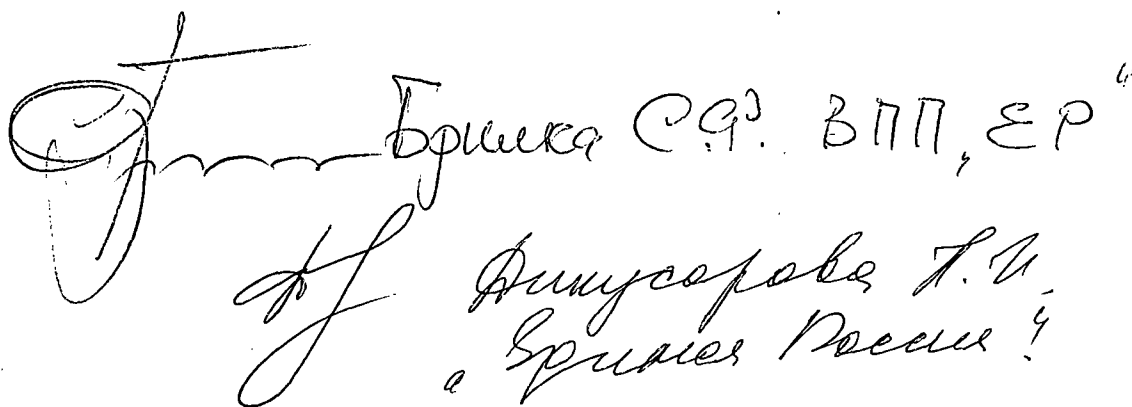 Брилка С.Ф. ВПП „ЕР“
Динусарова Н.И.
„Единая Россия“